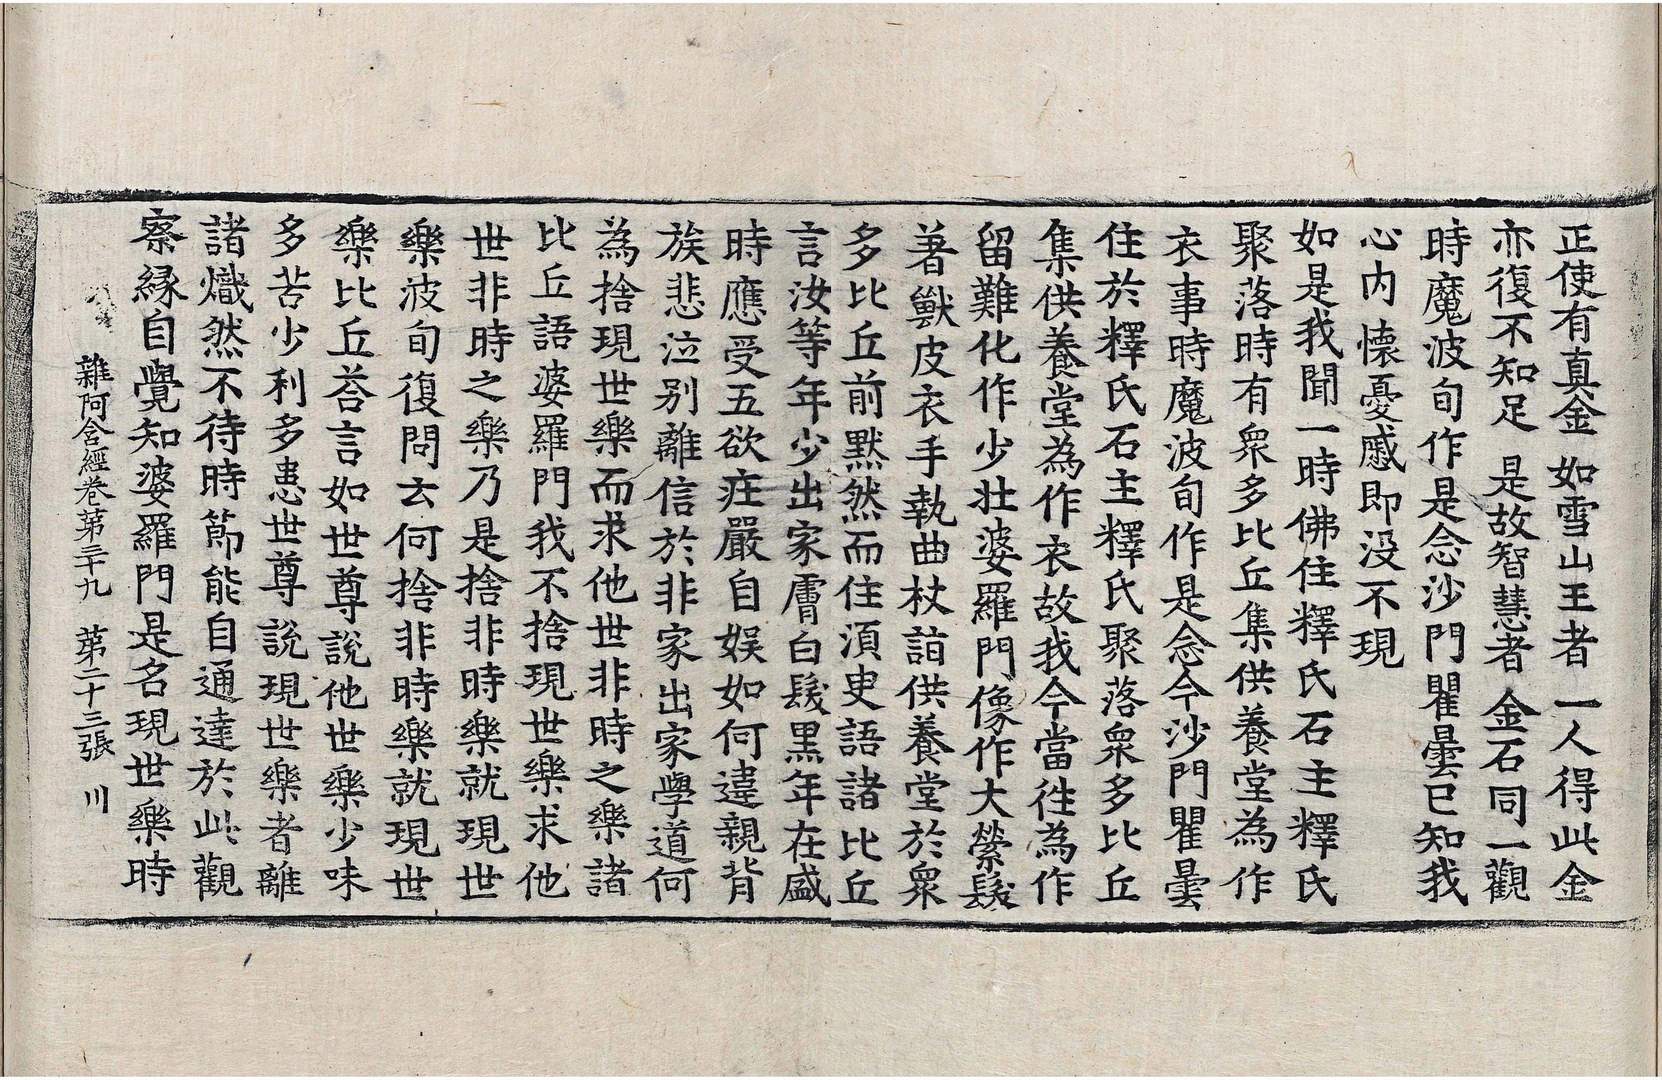 正使有真金 如雪山王者 一人得此金
亦復不知足 是故智慧者 金石同一觀
時魔波旬作是念沙門瞿曇已知我
心内懷憂慼即没不現
如是我聞一時佛住釋氏石主釋氏
聚落時有衆多比丘集供養堂為作
衣事時魔波旬作是念今沙門瞿曇
住於釋氏石主釋氏聚落衆多比丘
集供養堂為作衣故我今當徃為作
留難化作少壯婆羅門像作大縈髮
著獸皮衣手執曲杖詣供養堂於衆
多比丘前黙然而住湏臾語諸比丘
言汝等年少出家膚白髮黒年在盛
時應受五欲莊嚴自娱如何違親背
族悲泣别離信於非家出家學道何
為捨現世樂而求他世非時之樂諸
比丘語婆羅門我不捨現世樂求他
世非時之樂乃是捨非時樂就現世
樂波旬復問云何捨非時樂就現世
樂比丘荅言如世尊說他世樂少味
多苦少利多患世尊說現世樂者離
諸熾然不待時節能自通達於此觀
察縁自覺知婆羅門是名現世樂時
雜阿含經卷第三十九 第二十三張 川